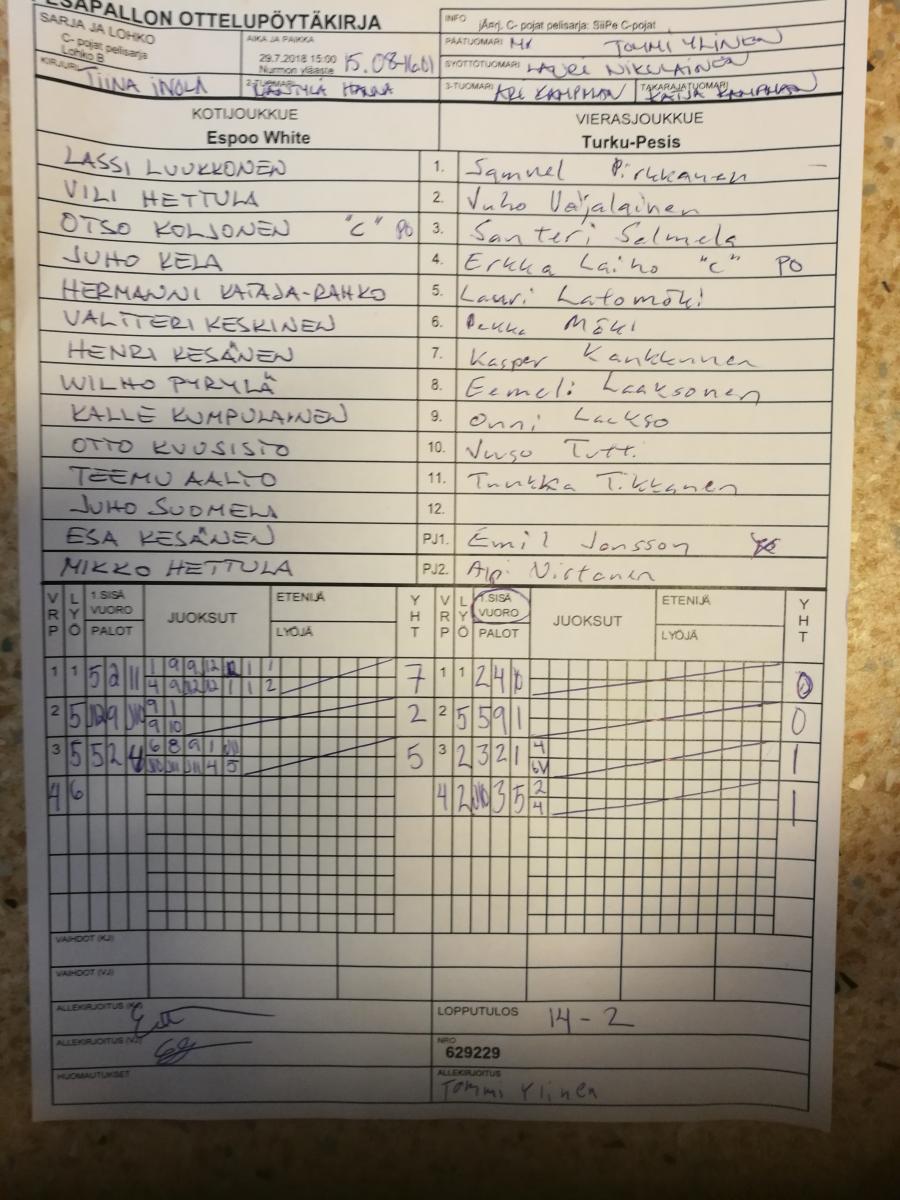 PESÄPALLON OTTELUPÖYTÄKIRJA
SARJA JA LOHKO
C- pojat pelisarja
Lohko B
AIKA JA PAIKKA
29.7.2018 15:00
Nurmon yläaste
15.08-16.01
INFO
jÄrrj. C- pojat pelisarja: SiiPe C-pojat
PÄÄTUOMARI TOMMI YLINEN
SYÖTTÖTUOMARI LAURI NIKULAINEN
KIRJURI TIINA INOLA
2-TUOMARI HANNA
3-TUOMARI ARI KAMPMAN
TAKARAJATUOMARI KATJA KAMPMAN
KOTIJOUKKUE
Espoo White
VIERASJOUKKUE
Turku-Pesis
LASSI LUUKKONEN 1. Samuel Pirkkanen
VILI HETTULA 2. Juho Väjälainen
OTSO KOLJONEN "C" PO 3. Santeri Salmela
JUHO KELA 4. Erkka Laiho "C" PO
HERMANNI KATAJA-RAHKO 5. Lauri Latomäki
VALTTERI KESKINEN 6. Pekka Mäki
HENRI KESÄNEN 7. Kasper Kankkunen
WILHO PYRYLÄ 8. Eemeli Laaksonen
KALLE KUMPULAINEN 9. Onni Laakso
OTTO KUUSISTO 10. Tutti
TEEMU AALTO 11. Tuukka Tikkanen
JUHO SUOMELA 12.
ESA KESÄNEN PJ1. Emil Jonsson
MIKKO HETTULA PJ2. Nistanen
VRP LYÖ 1.SISÄ VUORO PALOT JUOKSUT ETENIJÄ LYÖJÄ YHT VRP LYÖ 1.SISÄ VUORO PALOT JUOKSUT ETENIJÄ LYÖJÄ YHT
1 1 5 2 11 1 9 9 12 1 1 7 1 1 2 4 0
4 9 12 12 1 1 2
2 5 9 9 1 2 2 5 5 9 1 0
9 10
3 5 5 2 6 8 9 1 5 3 2 3 2 1 4 1
4 5
4 6 4 2 3 5 2 1
4
VAIHDOT (KJ)
VAIHDOT (VJ)
ALLEKIRJOITUS (KJ)
LOPPUTULOS 14-2
ALLEKIRJOITUS (VJ)
NRO
629229
HUOMAUTUKSET
ALLEKIRJOITUS
Tommi Ylinen